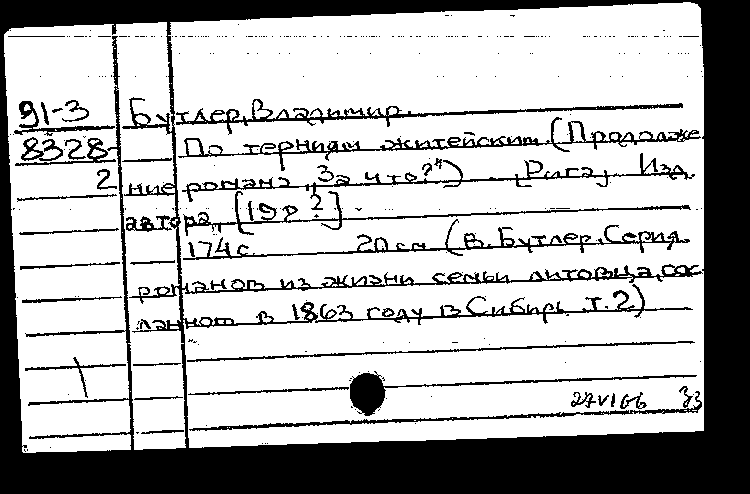 91-3 Бутлер, Владимир.
8328- По терниям житейским. (Продолже
2 ние романа „За что?“) [Рига], Изд.
автора, [19 ?].
174с. 20см (В. Бутлер. Серия
романов из жизни семьи литовца, сос
ланного в 1863 году в Сибирь т. 2)
27VI66 33